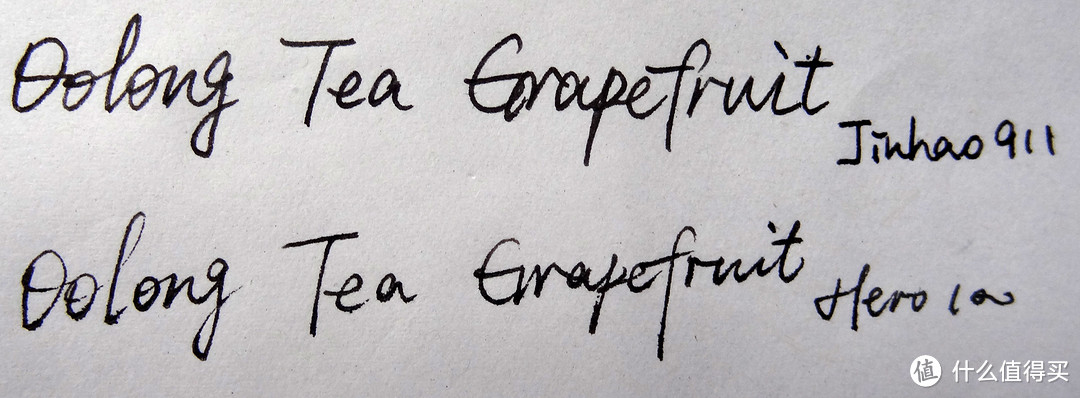 Oolong Tea Grapefruit
Jinhao 911
Oolong Tea Grapefruit
Hero 100
值 什么值得买